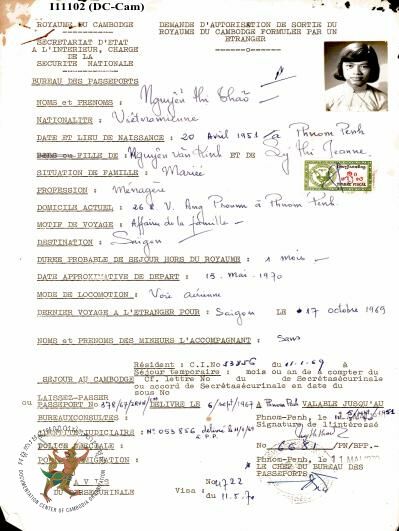 I11102 (DC-Cam)
ROYAUME DU CAMBODGE
SECRETARIAT D'ETAT
A L'INTERIEUR, CHARGE
DE LA
SECURITE NATIONALE
BUREAU DES PASSEPORTS
DEMANDE D'AUTORISATION DE SORTIE DU
ROYAUME DU CAMBODGE FORMULEE PAR UN
ETRANGER
NOMS et PRENOMS : Nguyên Thi Thao
NATIONALITE : Viêtnamienne
DATE ET LIEU DE NAISSANCE : 20 Avril 1951 à Phnom Penh
ou FILLE DE Nguyên van Kinh ET DE Ly Thi Jeanne.
SITUATION DE FAMILLE : Mariée
PROFESSION : Ménagère
DOMICILE ACTUEL : 26 Ang Phnom à Phnom Penh.
MOTIF DE VOYAGE : Affaire de la famille
DESTINATION : Saigon
DUREE PROBABLE DE SEJOUR HORS DU ROYAUME : 1 mois
DATE APPROXIMATIVE DE DEPART : 15 mai 1970
MODE DE LOCOMOTION : Voie aérienne
DERNIER VOYAGE A L'ETRANGER POUR : Saigon 17 octobre 1969
NOMS et PRENOMS DES MINEURS L'ACCOMPAGNANT : Sans
Résident : C.I.No 53856 du 11.1.69
Séjour temporaire : mois ou an à compter du
SEJOUR AU CAMBODGE Cf. lettre No du de Secrétaséurinale
ou accord de Secrétaséurinale en date du
sous No
LAISSEZ-PASSER
ou PASSEPORT No DELIVRE LE 6/sept/1967 à Phnom Penh VALABLE JUSQU'AU
BUREAUX CONSULTES :
Phnom-Penh, le
Signature de l'intéressé
JUDICIAIRES : No 053856 delivré
P.P.
POLICE SPECIALE :
No 6681 /PN/BPP.-
Phnom-Penh, le 11 MAI 1970
LE CHEF DU BUREAU DES
PASSEPORTS
A V I S
SECURINALE
Visa : du 11.5.70
DOCUMENTATION CENTER OF CAMBODIA